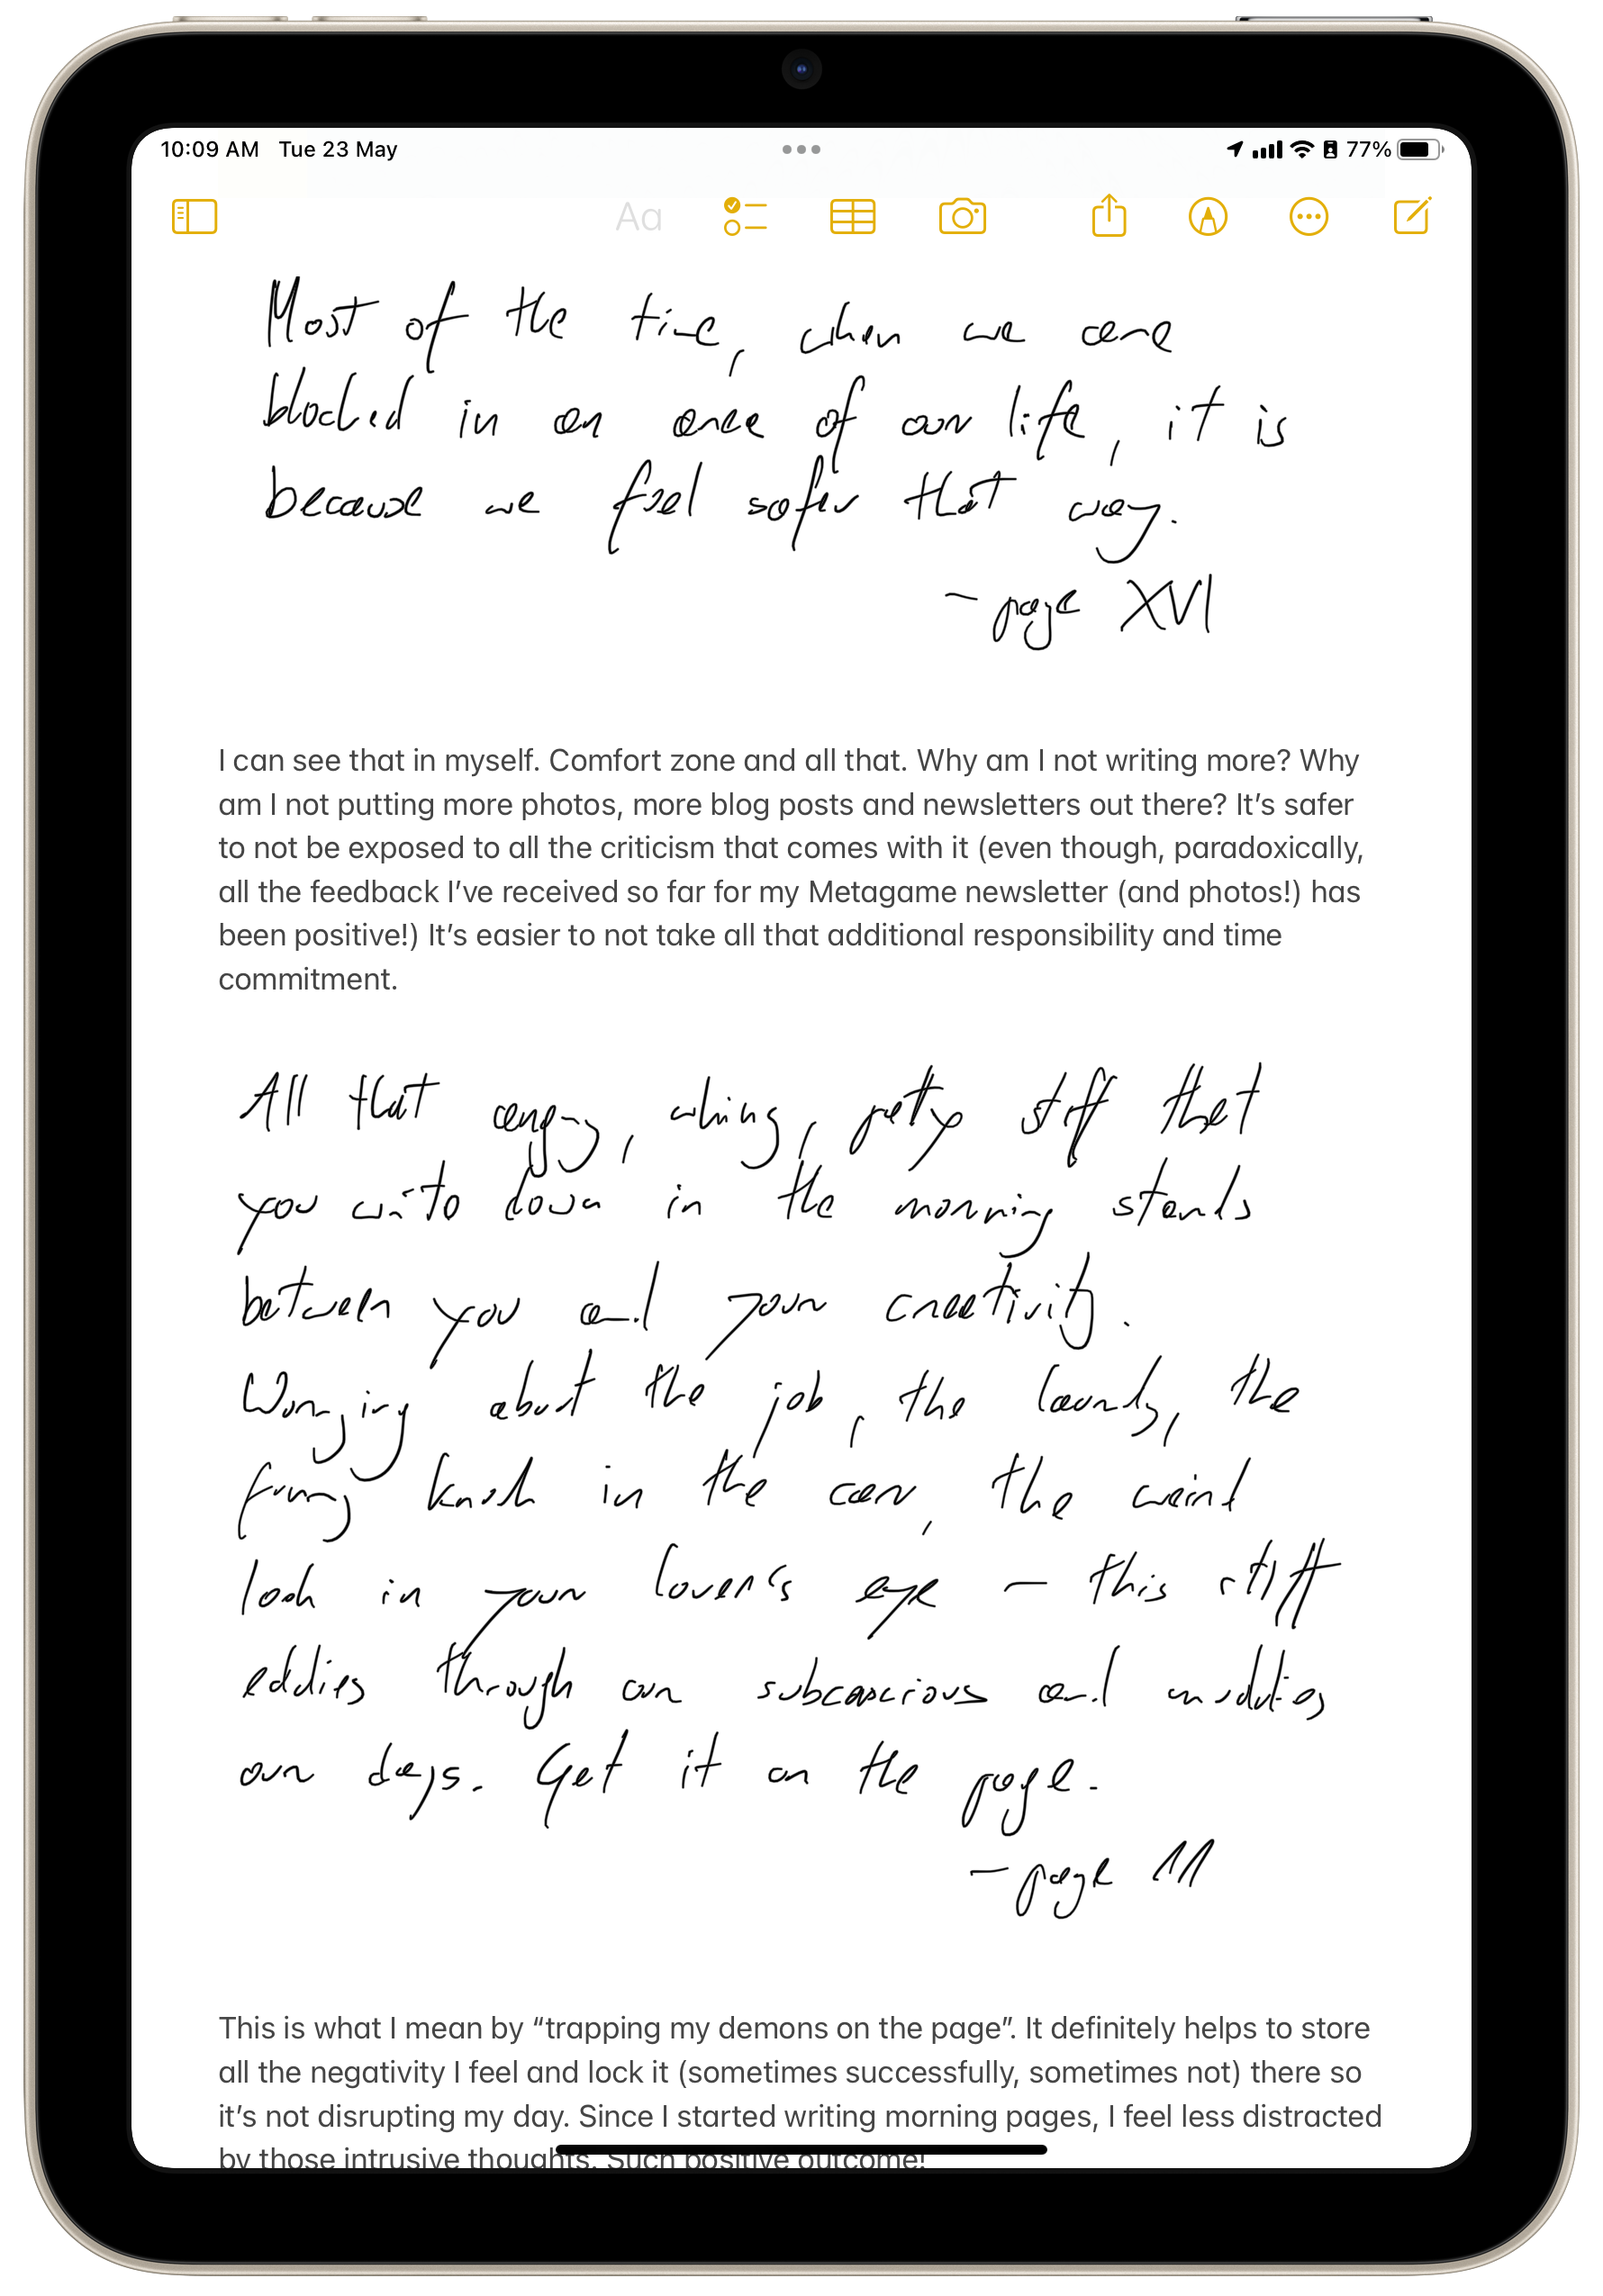 10:09 AM Tue 23 May 77%
Aa
Most of the time, when we are
blocked in an area of our life, it is
because we feel safer that way.
— page XVI
I can see that in myself. Comfort zone and all that. Why am I not writing more? Why
am I not putting more photos, more blog posts and newsletters out there? It’s safer
to not be exposed to all the criticism that comes with it (even though, paradoxically,
all the feedback I’ve received so far for my Metagame newsletter (and photos!) has
been positive!) It’s easier to not take all that additional responsibility and time
commitment.
All that angry, whiny, petty stuff that
you write down in the morning stands
between you and your creativity.
Worrying about the job, the laundry, the
funny knock in the car, the weird
look in your lover's eye — this stuff
eddies through our subconscious and muddies
our days. Get it on the page.
— page 11
This is what I mean by “trapping my demons on the page”. It definitely helps to store
all the negativity I feel and lock it (sometimes successfully, sometimes not) there so
it’s not disrupting my day. Since I started writing morning pages, I feel less distracted
by those intrusive thoughts. Such positive outcome!